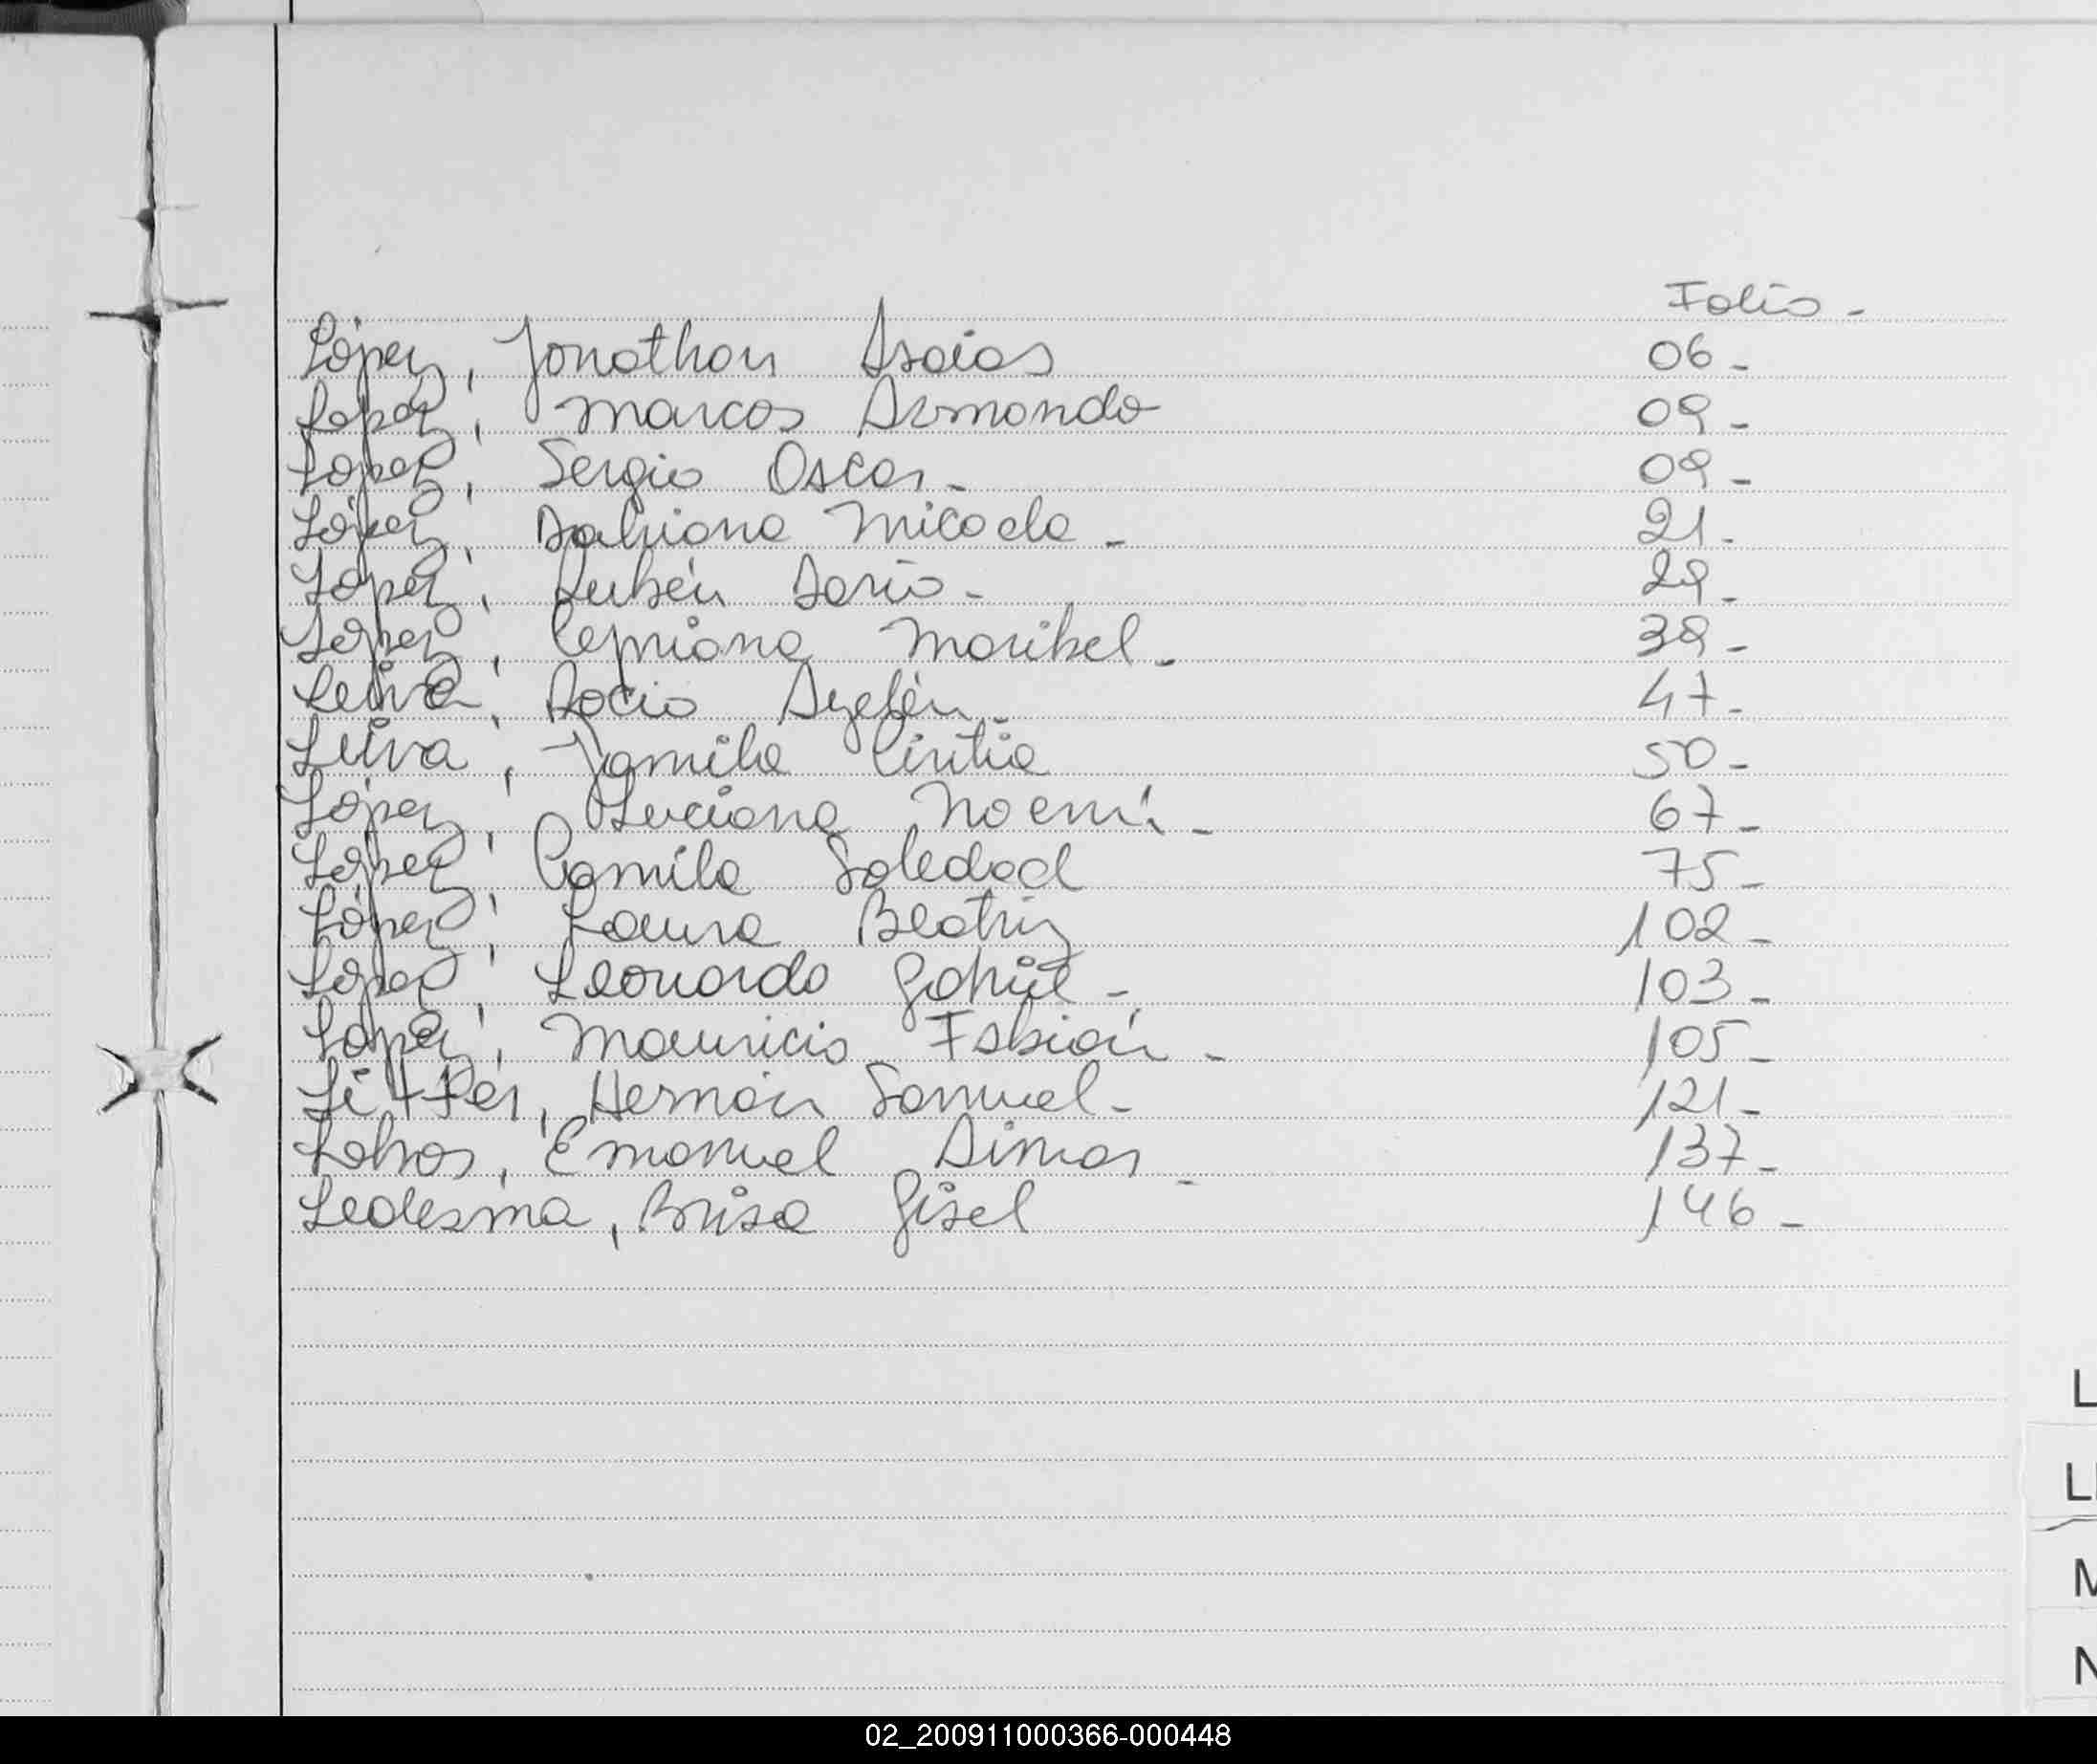 Folio -
López, Jonathan Isaias 06 -
Lopez, Marcos Armando 09 -
Lopez, Sergio Oscar - 09 -
López, Dahiana Micaela - 21 -
López, Rubén Dario - 29 -
López, Cipriana Maribel - 38 -
Leiva, Rocio Ayelén - 47 -
Leiva, Yamila Cintia 50 -
López, Luciana Noemí - 67 -
López, Camila Soledad 75 -
López, Laura Beatriz 102 -
López, Leonardo Gabriel - 103 -
Lopez, Mauricio Fabián - 105 -
Hernán Samuel - 121 -
Lobos, Emanuel Dimas - 137 -
Ledesma, Brisa Gisel 146 -
L
M
N
02_200911000366-000448